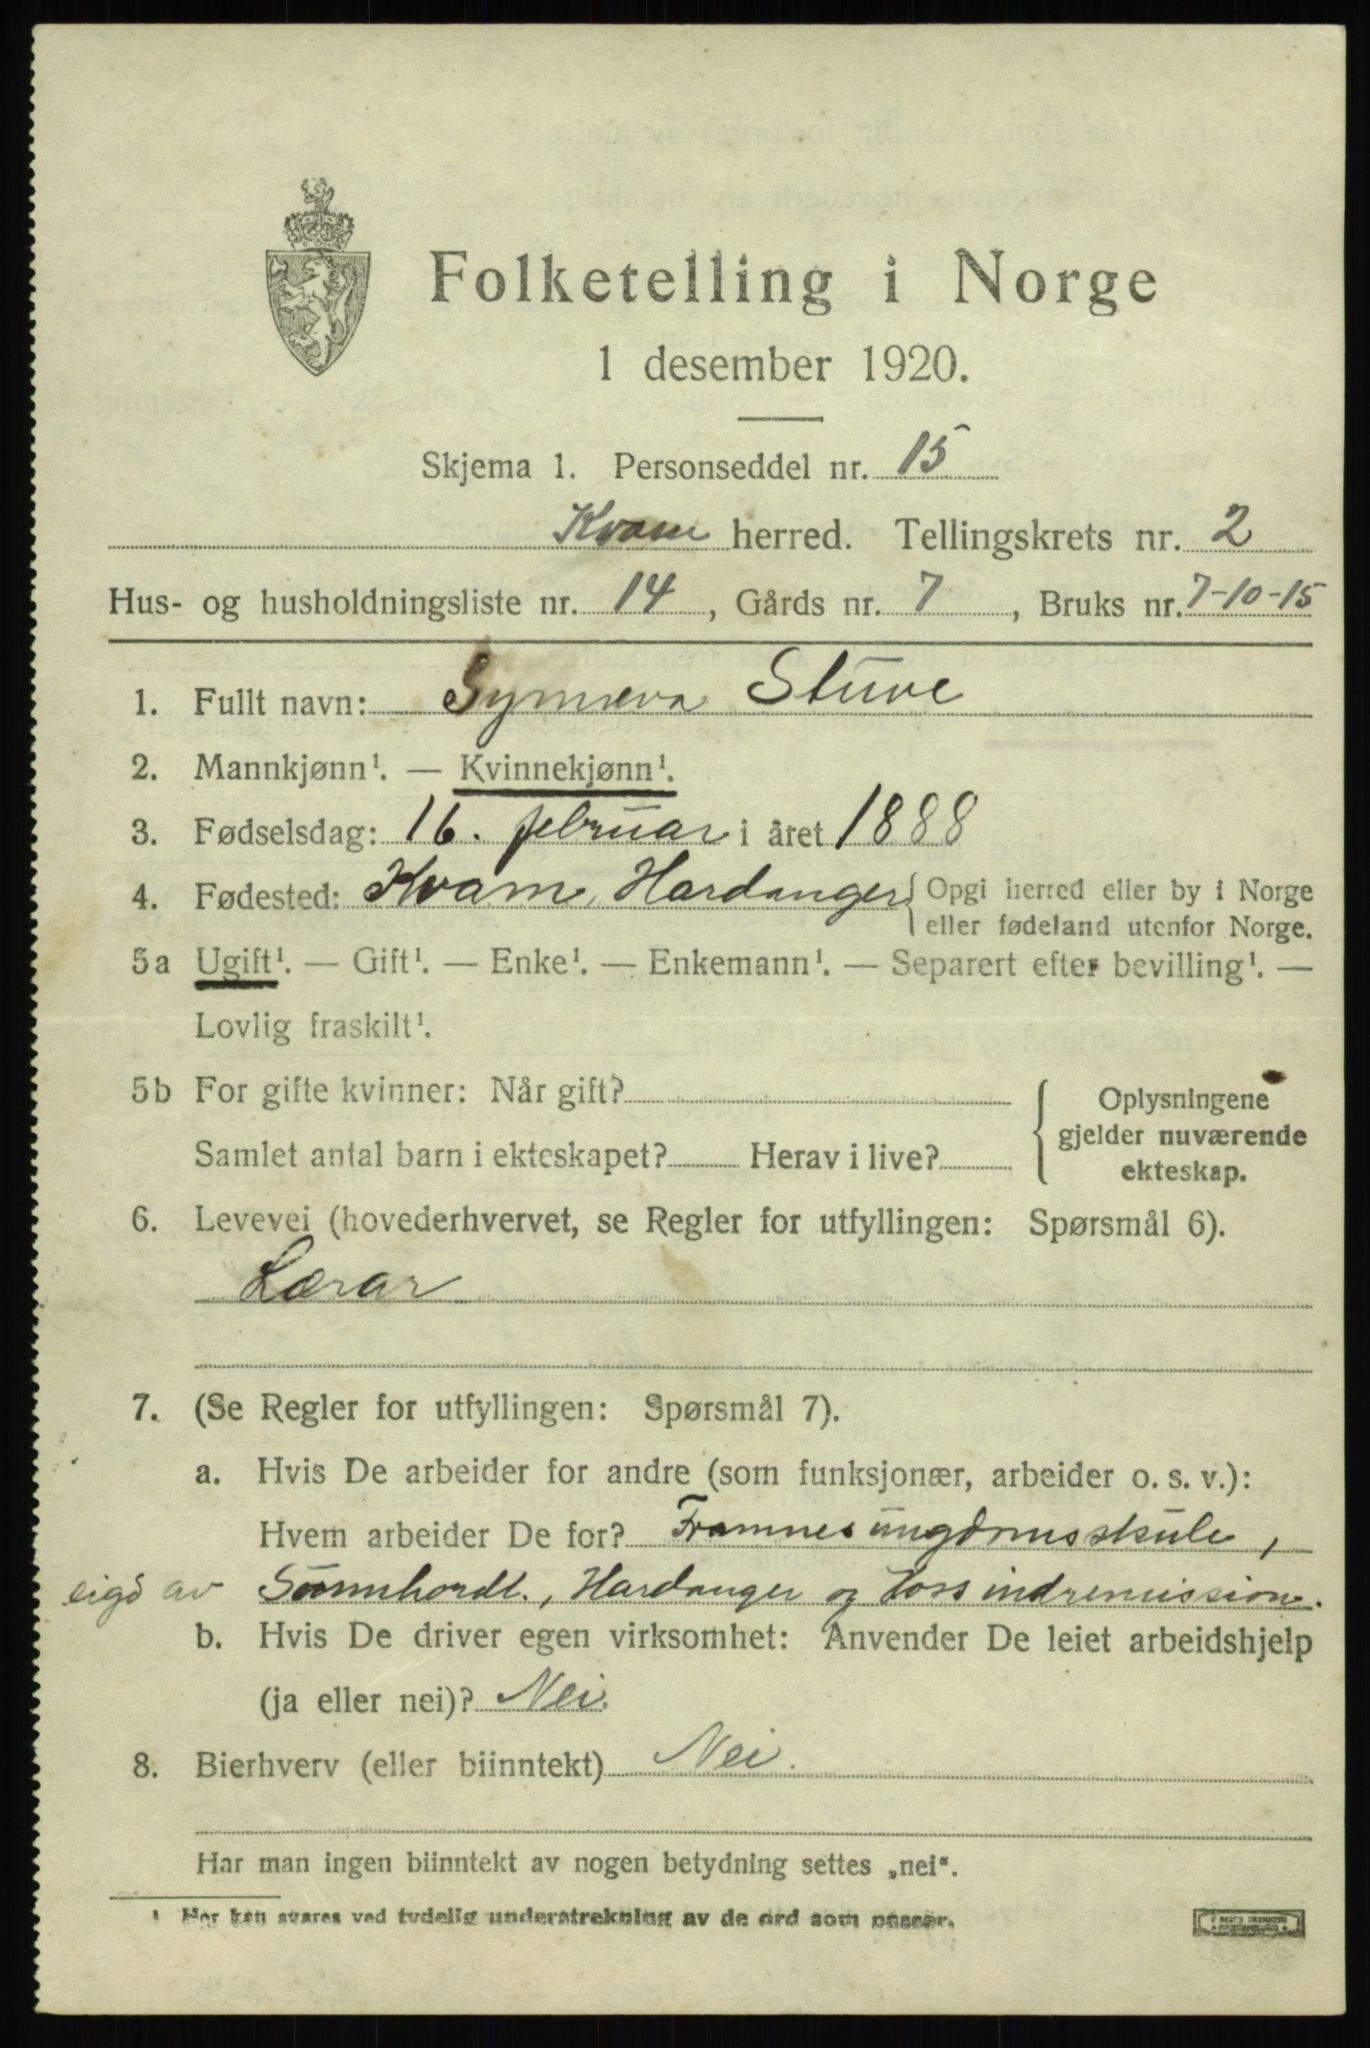 Folketelling i Norge
1 desember 1920.
Skjema 1. Personseddel nr. 15
Kvam herred. Tellingskrets nr. 2
Hus- og husholdningsliste nr. 14, Gårds nr. 7, Bruks nr. 7-10-15
1. Fullt navn: Synneva Stuve
2. Mannkjønn¹. — Kvinnekjønn¹.
3. Fødselsdag: 16. februar i året 1888
4. Fødested: Kvam, Hardanger { Opgi herred eller by i Norge
eller fødeland utenfor Norge.
5a Ugift¹. — Gift¹. — Enke¹. — Enkemann¹. — Separert efter bevilling¹. —
Lovlig fraskilt¹.
5b For gifte kvinner: Når gift?
Samlet antal barn i ekteskapet? Herav i live?
Oplysningene
gjelder nuværende
ekteskap.
6. Levevei (hovederhvervet, se Regler for utfyllingen: Spørsmål 6).
Lærar
7. (Se Regler for utfyllingen: Spørsmål 7).
a. Hvis De arbeider for andre (som funksjonær, arbeider o. s. v.):
Hvem arbeider De for? Framnes ungdomsskule,
eigd av Sunnhordl., Hardanger og Voss indremission.
b. Hvis De driver egen virksomhet: Anvender De leiet arbeidshjelp
(ja eller nei)? Nei.
8. Bierhverv (eller biinntekt) Nei.
Har man ingen biinntekt av nogen betydning settes „nei“.
¹ Her kan svares ved tydelig understrekning av de ord som passer.